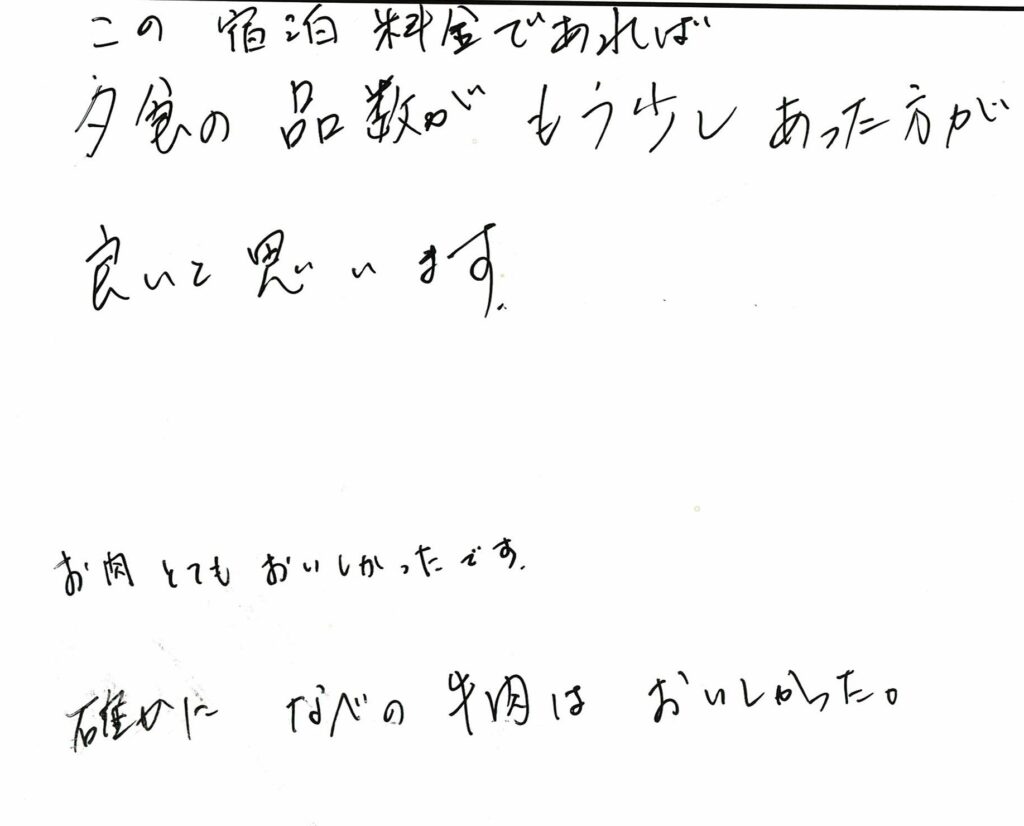 この宿泊料金であれば
夕食の品数がもう少しあった方が
良いと思います.
お肉とてもおいしかったです.
確かになべの牛肉はおいしかった。